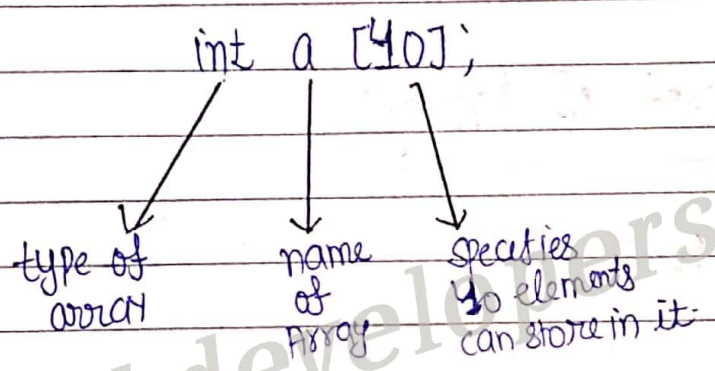 int a [40];
type of
array
name
of
Array
specifies
40 elements
can store in it.
developers